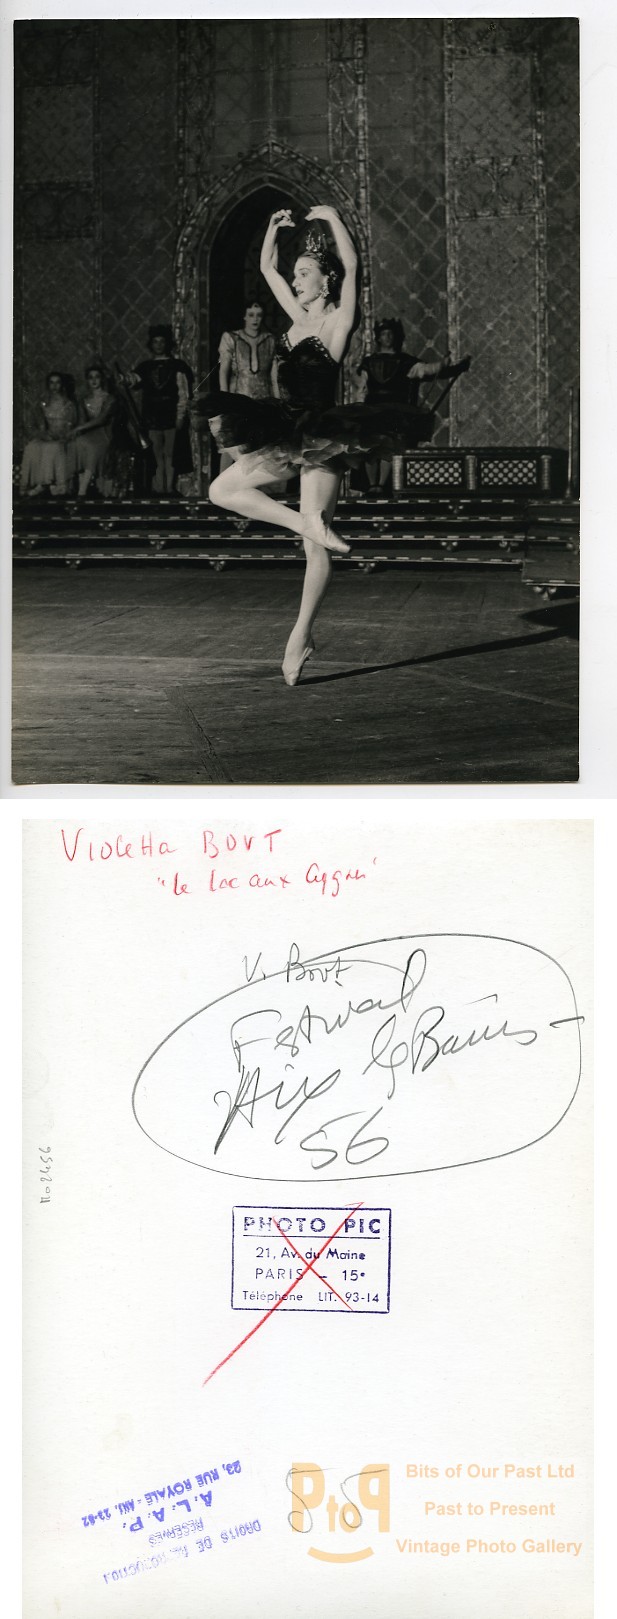 Violetta BOVT
"Le lac aux Cygnes"
V. Bovt
Festival
Aix les Bains -
56
PHOTO PIC
21, Av. du Maine
PARIS - 15e
Téléphone LIT. 93-14
DROITS DE REPRODUCTION
RESERVES
A. L. A. P.
23, RUE ROYALE - ANJ. 23-82
55
PtoP
Bits of Our Past Ltd
Past to Present
Vintage Photo Gallery